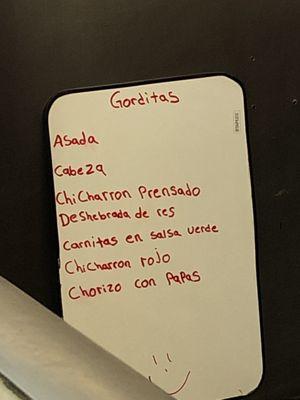 Gorditas
Asada
Cabeza
Chicharron Prensado
Deshebrada de res
Carnitas en salsa verde
Chicharron rojo
Chorizo con papas